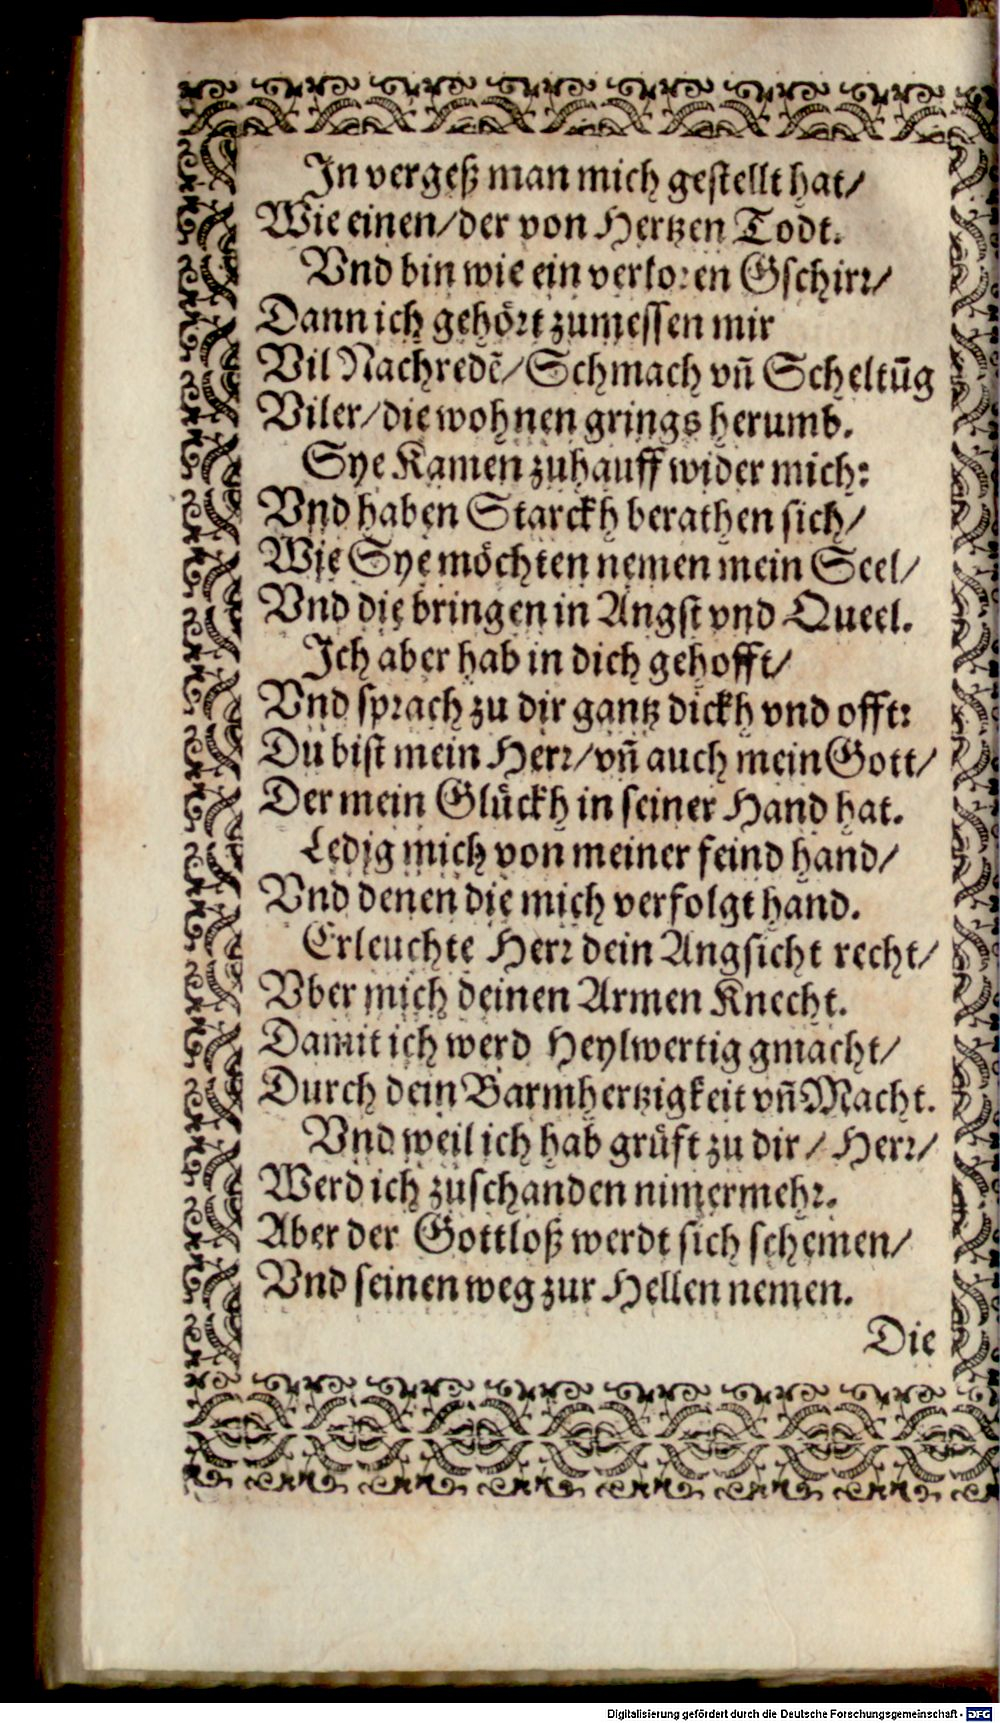 In vergeß man mich gestellt hat/
Wie einen/der von Hertzen Todt.
Vnd bin wie ein verloren Gschirr/
Dann ich gehört zumessen mir
Vil Nachredẽ/Schmach vñ Scheltũg
Viler/die wohnen grings herumb.
Sye Kamen zuhauff wider mich:
Vnd haben Starckh berathen sich/
Wie Sye möchten nemen mein Seel/
Vnd die bringen in Angst vnd Queel.
Ich aber hab in dich gehofft/
Vnd sprach zu dir gantz dickh vnd offt:
Du bist mein Herr/vñ auch mein Gott/
Der mein Glückh in seiner Hand hat.
Ledig mich von meiner feind hand/
Vnd denen die mich verfolgt hand.
Erleuchte Herr dein Angsicht recht/
Vber mich deinen Armen Knecht.
Damit ich werd Heylwertig gmacht/
Durch dein Barmhertzigkeit vñ Macht.
Vnd weil ich hab grüft zu dir/ Herr/
Werd ich zuschanden nimermehr.
Aber der Gottloß werdt sich schemen/
Vnd seinen weg zur Hellen nemen.
Die
Digitalisierung gefördert durch die Deutsche Forschungsgemeinschaft - DFG